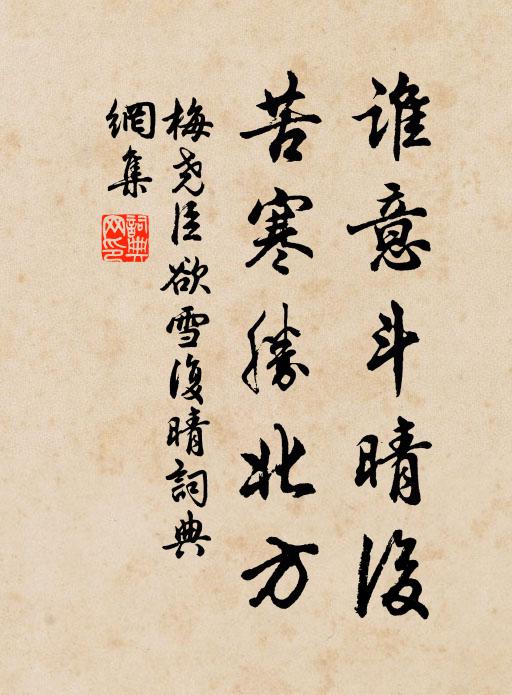 谁意斗晴後
苦寒勝北方
梅尧臣欲雪復晴詞典
網集
詞典网印